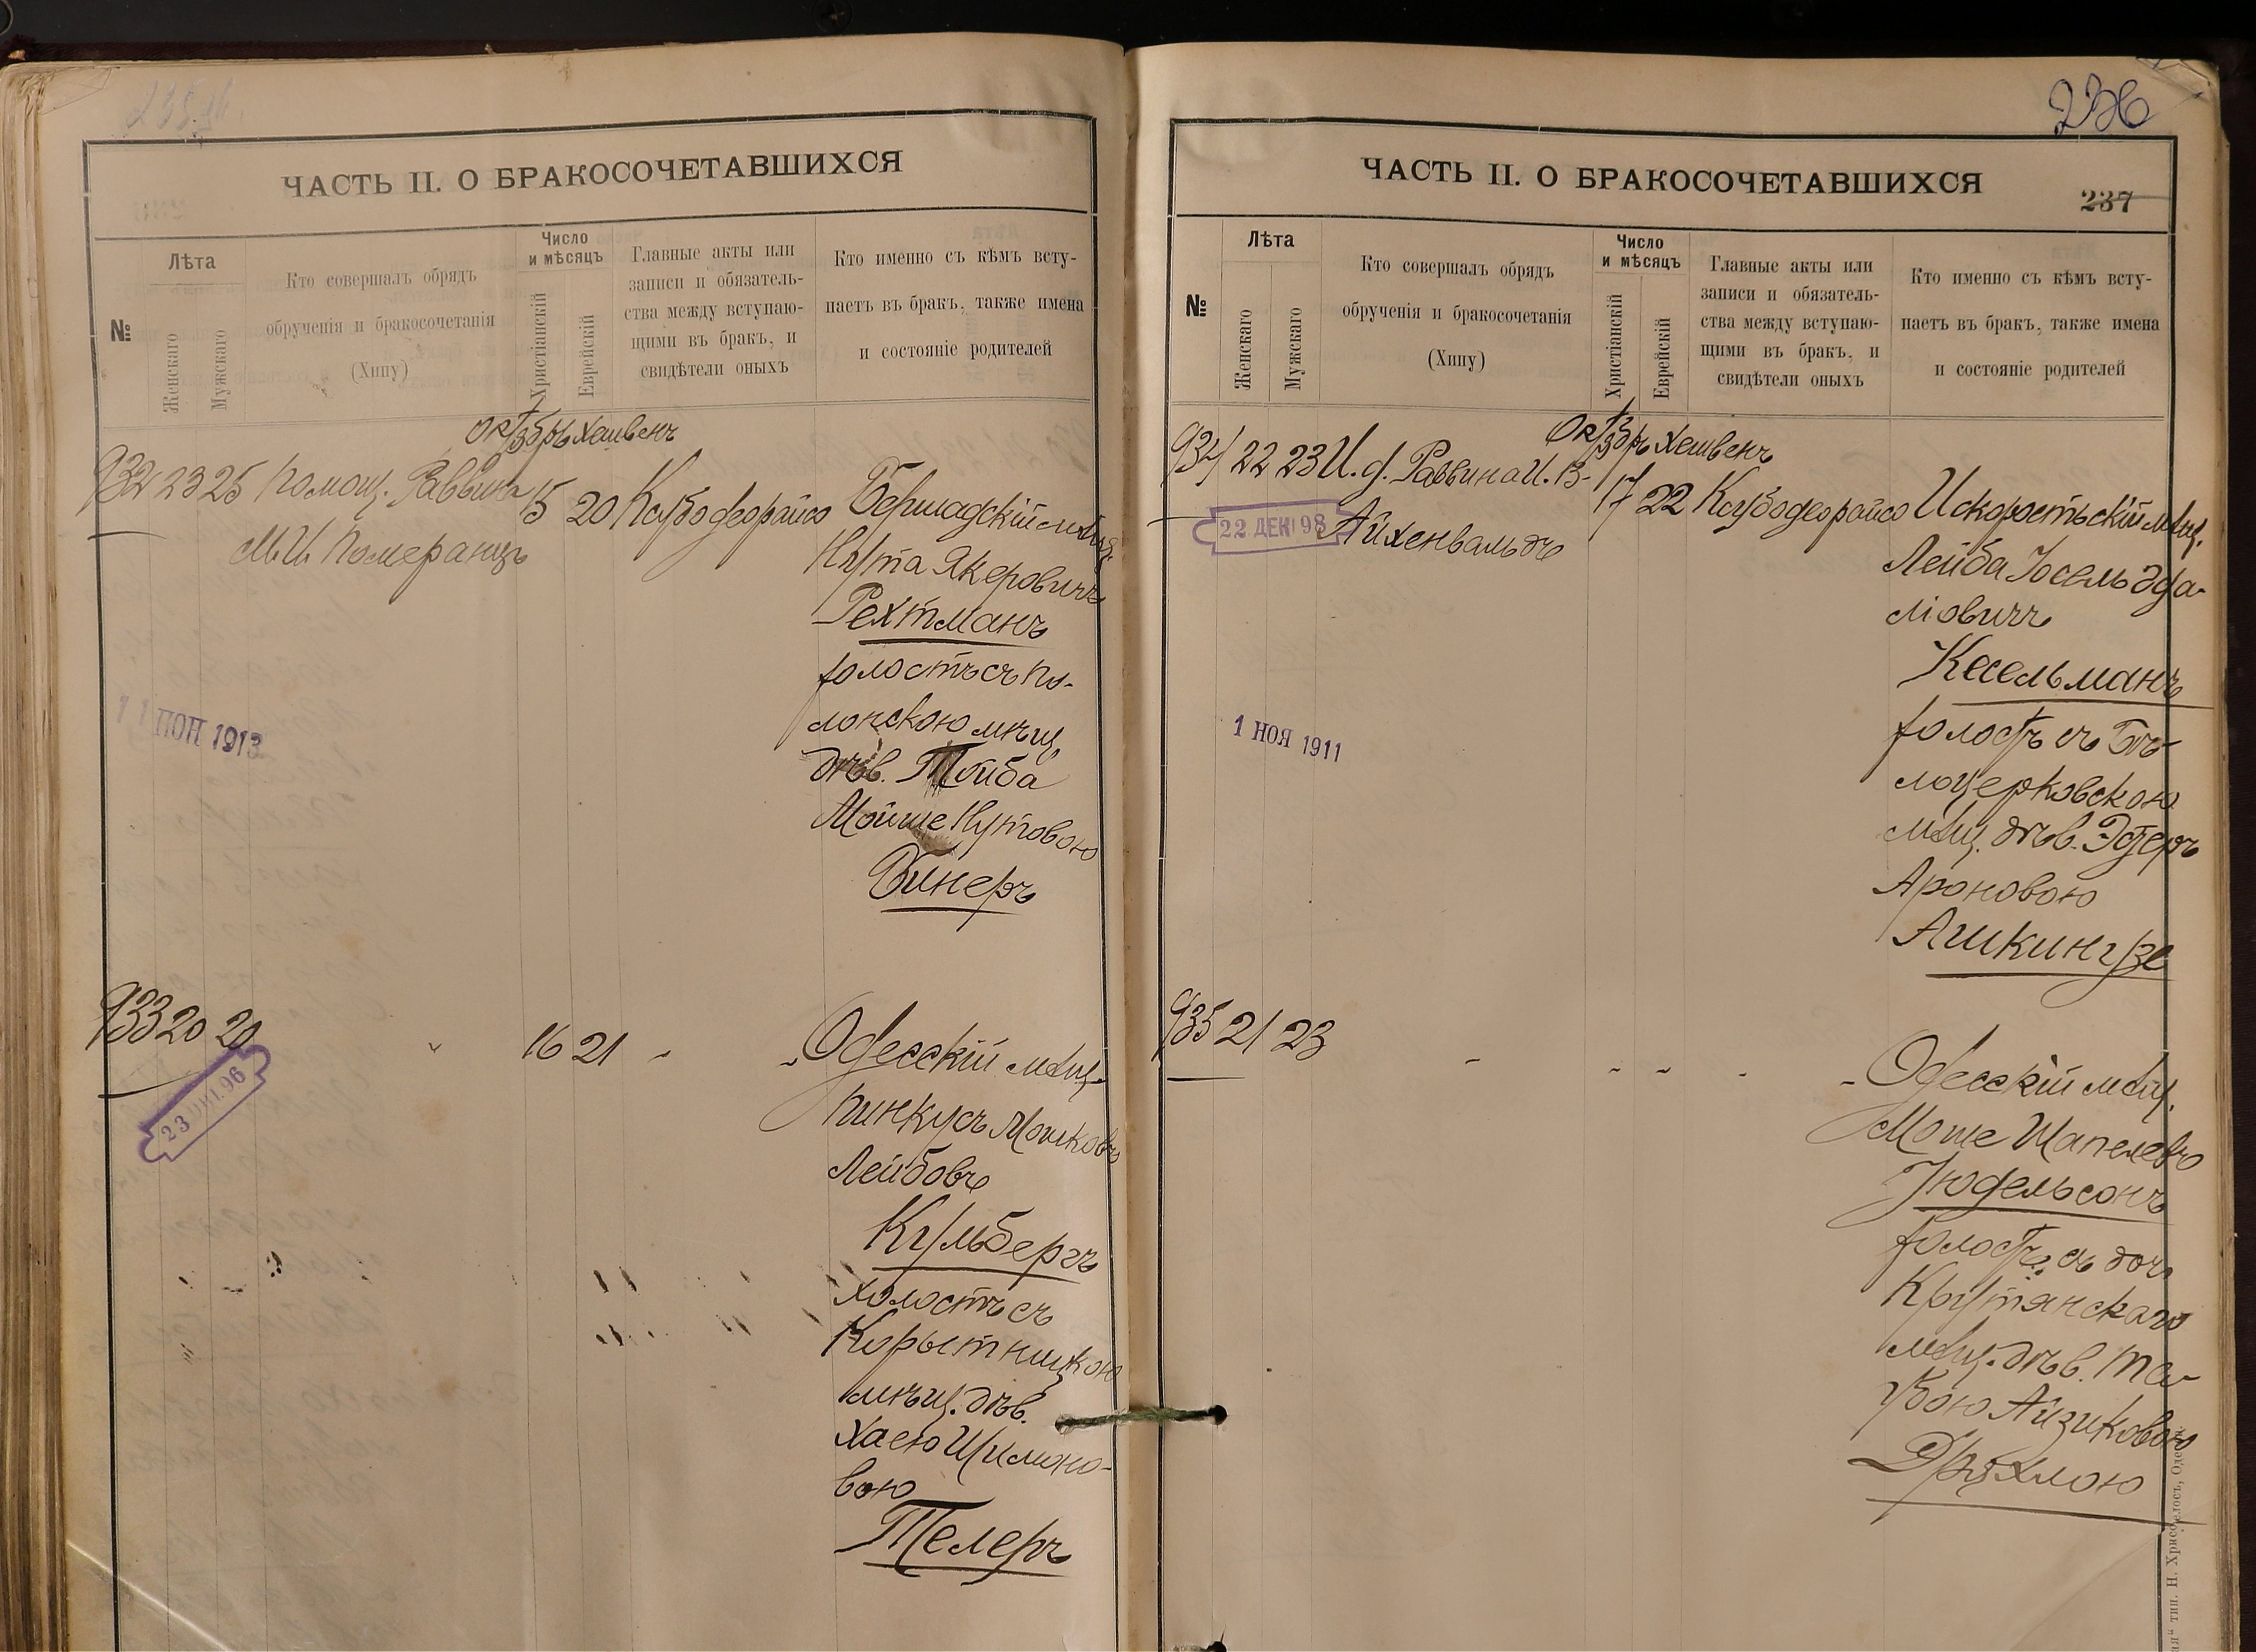 ЧАСТЬ II. О БРАКОСОЧЕТАВШИХСЯ
№
Лѣта
Женскаго
Мужскаго
Кто совершалъ обрядъ
обрученія и бракосочетанія
(Хипу)
Число
и мѣсяцъ
Христіанскій
Еврейскій
Главные акты или
записи и обязатель-
ства между вступаю-
щими въ бракъ, и
свидѣтели оныхъ
Кто именно съ кѣмъ всту-
паетъ въ бракъ, также имена
и состояніе родителей
932 23 25 Помощ. Раввина
М. И. Померанцъ
Октябрь Хешвенъ
15 20 Ксубо деорайсо
Бершадскій мѣщ.
Нута Якеровичъ
Рехтманъ
холостъ съ По-
лонскою мѣщ.
дѣв. Тойба
Мойше Нутовою
Бинеръ
11 1913
933 20 20
16 21
Одесскій мѣщ.
Пинкусъ Мошковъ
Лейбовъ
Кульбергъ
холостъ съ
Корытницкою
мѣщ. дѣв.
Хаею Шимоно-
вою
Телеръ
23 96
236
ЧАСТЬ II. О БРАКОСОЧЕТАВШИХСЯ
237
№
Лѣта
Женскаго
Мужскаго
Кто совершалъ обрядъ
обрученія и бракосочетанія
(Хипу)
Число
и мѣсяцъ
Христіанскій
Еврейскій
Главные акты или
записи и обязатель-
ства между вступаю-
щими въ бракъ, и
свидѣтели оныхъ
Кто именно съ кѣмъ всту-
паетъ въ бракъ, также имена
и состояніе родителей
934 22 23 И. д. Раввина И. В.
Айхенвальдъ
22 ДЕК 98
1 НОЯ 1911
Октябрь Хешвенъ
17 22 Ксубо деорайсо
Искоростьскій мѣщ.
Лейба Іосель Эда-
ліовичъ
Кесельманъ
холостъ съ Бѣ-
лоцерковскою
мѣщ. дѣв. Эстеръ
Ароновою
Ашкинузе
935 21 23
Одесскій мѣщ.
Моше Шапелевъ
Юдельсонъ
холостъ съ доч.
Крутянскаго
мѣщ. дѣв. Та-
убою Айзиковою
тип. Н. Хрисогелосъ, Одесса.